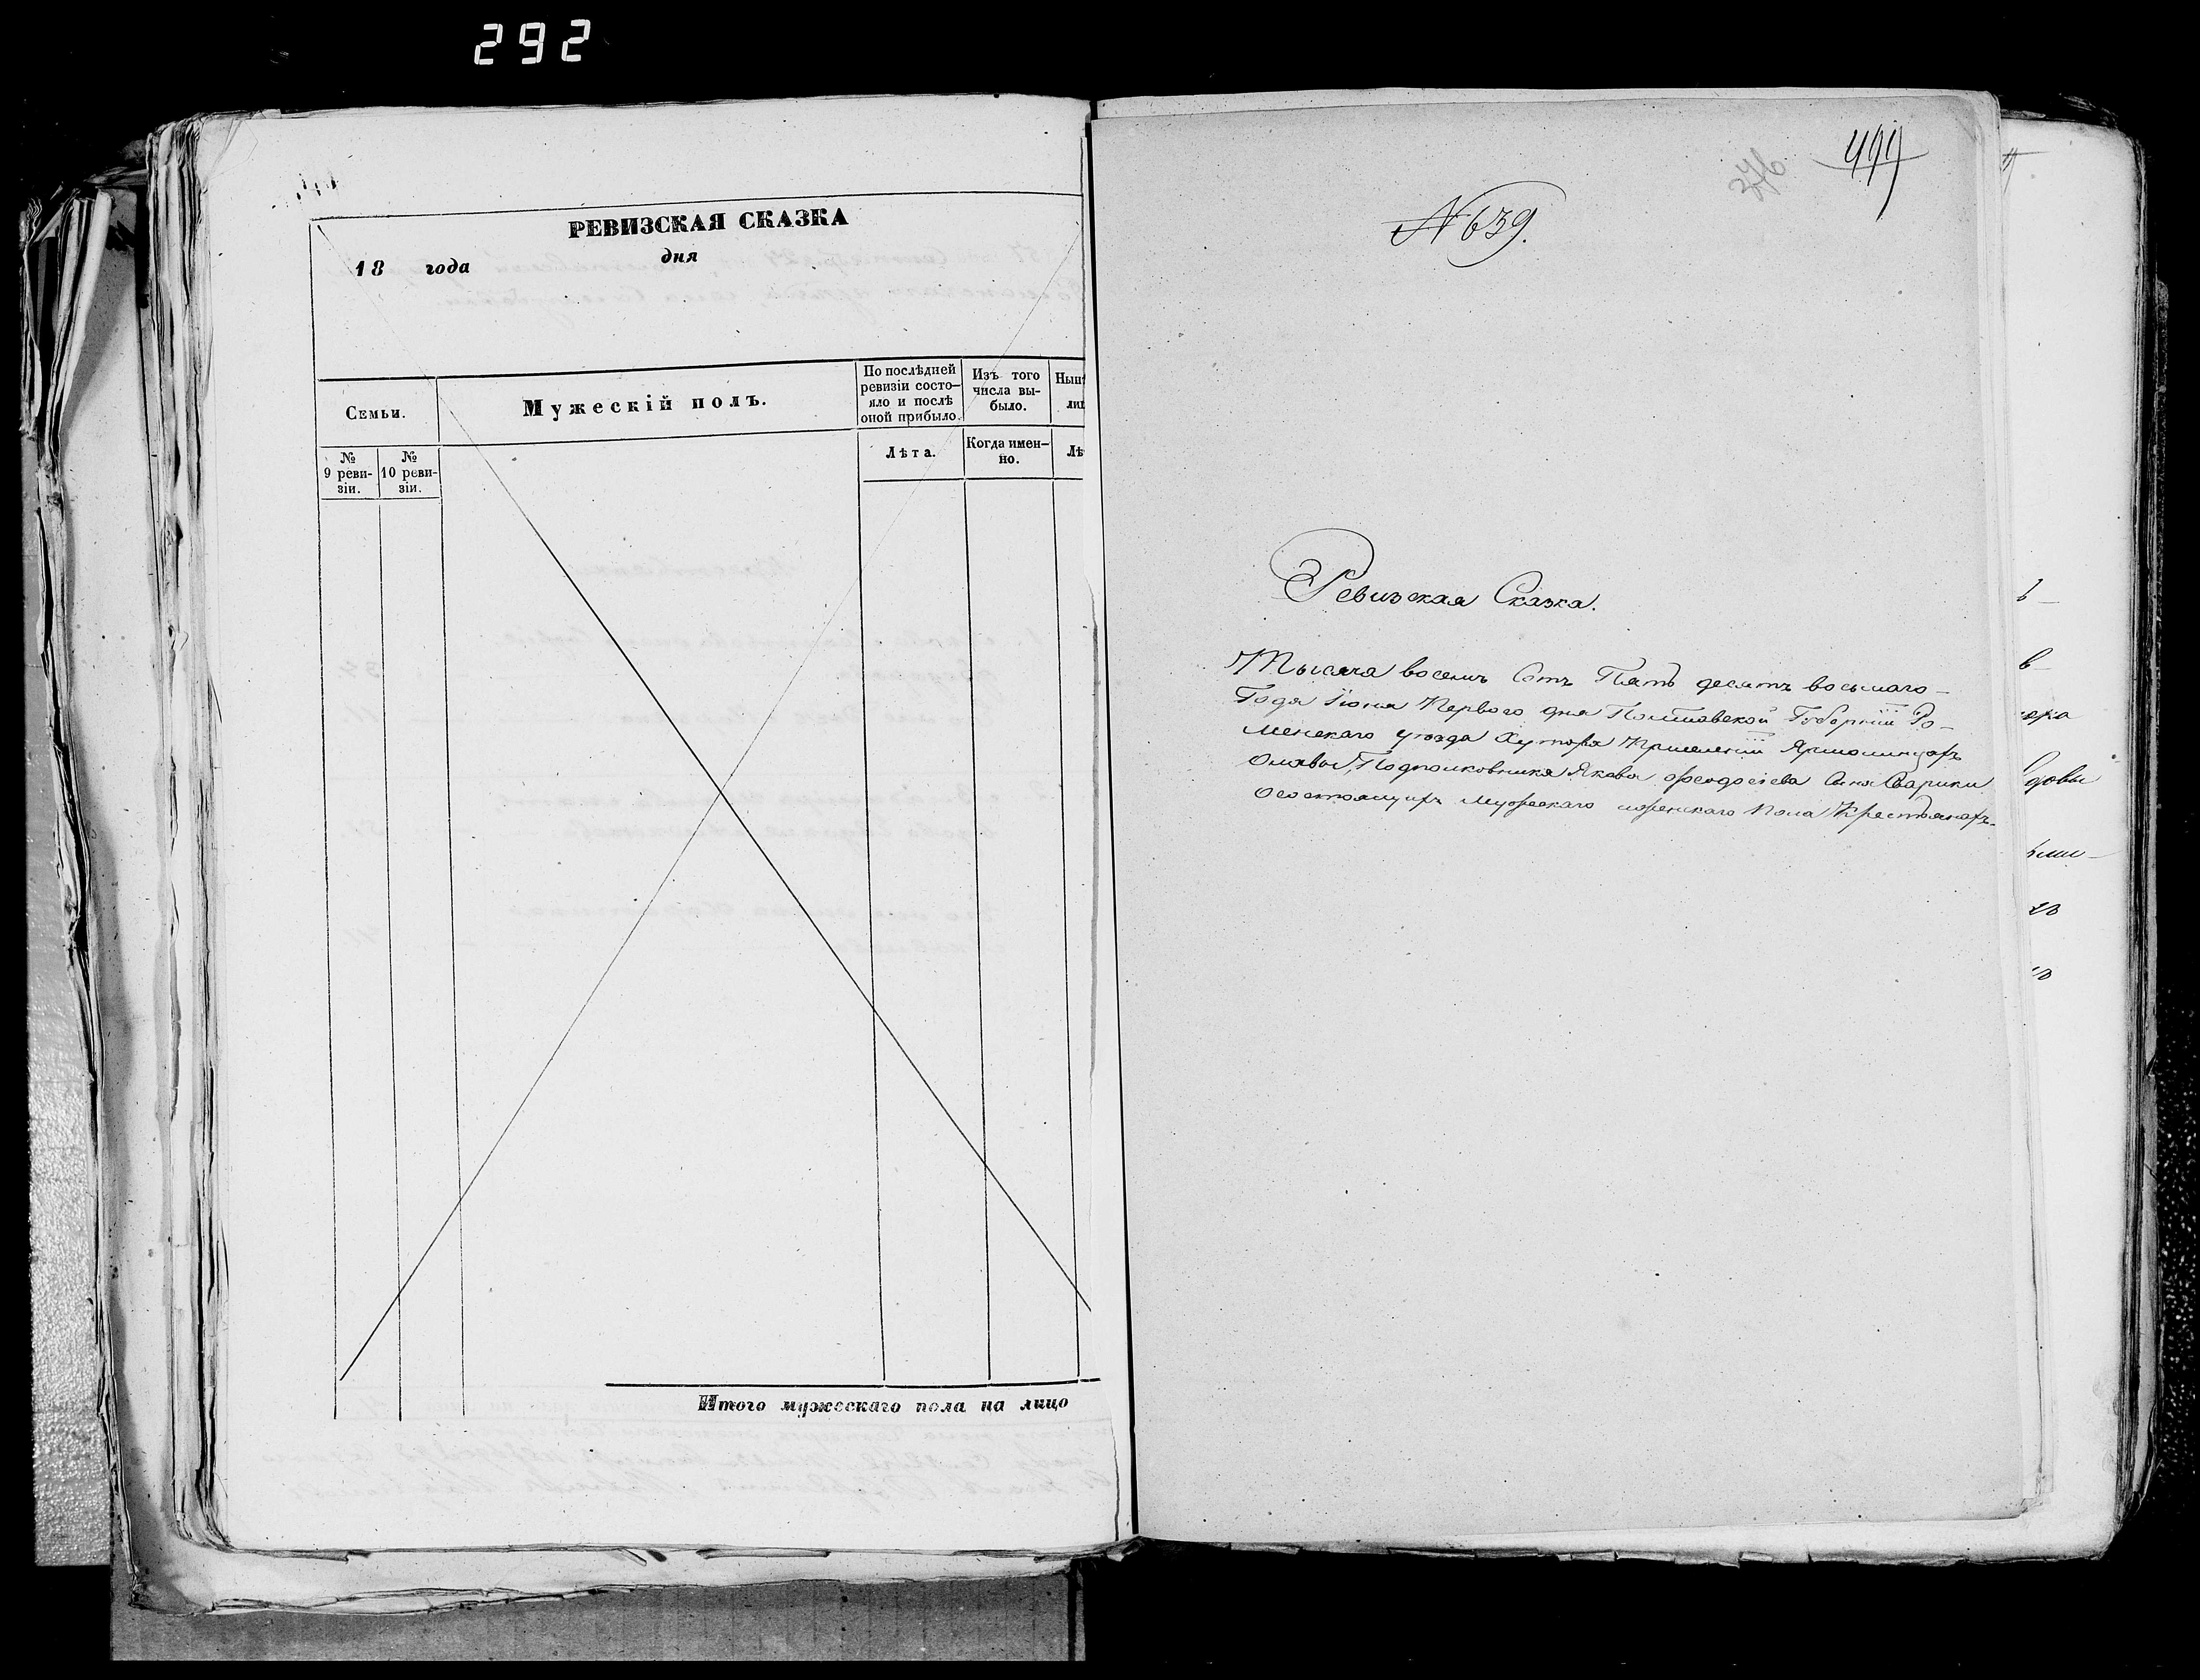 292
РЕВИЗСКАЯ СКАЗКА
18 года дня
Семьи.
Мужескій полъ.
По послѣдней ревизіи состо-
яло и послѣ оной прибыло.
Изъ того числа вы-
было.
№ 9 реви-
зіи.
№ 10 реви-
зіи.
Лѣта.
Когда имен-
но.
Итого мужескаго пола на лицо
499
276
N 639.
Ревизская Сказка.
Тысяча восемь Сотъ Пять десятъ восьмаго
Года Іюня Перваго дня Полтавской Губерніи Ро-
менскаго уѣзда Хутора
Подполковника Якова Феодосіева Сына
О состоящихъ мужескаго иженскаго пола Крестьянахъ.